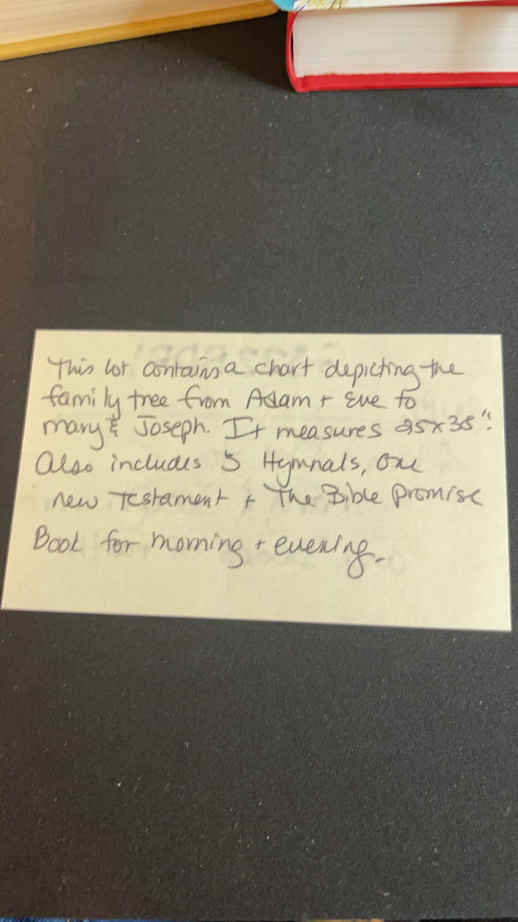 This lot contains a chart depicting the
family tree from Adam + Eve to
mary & Joseph. It measures 25x38".
Also includes 5 Hymnals, one
new Testament + The Bible Promise
Book for morning + evening.